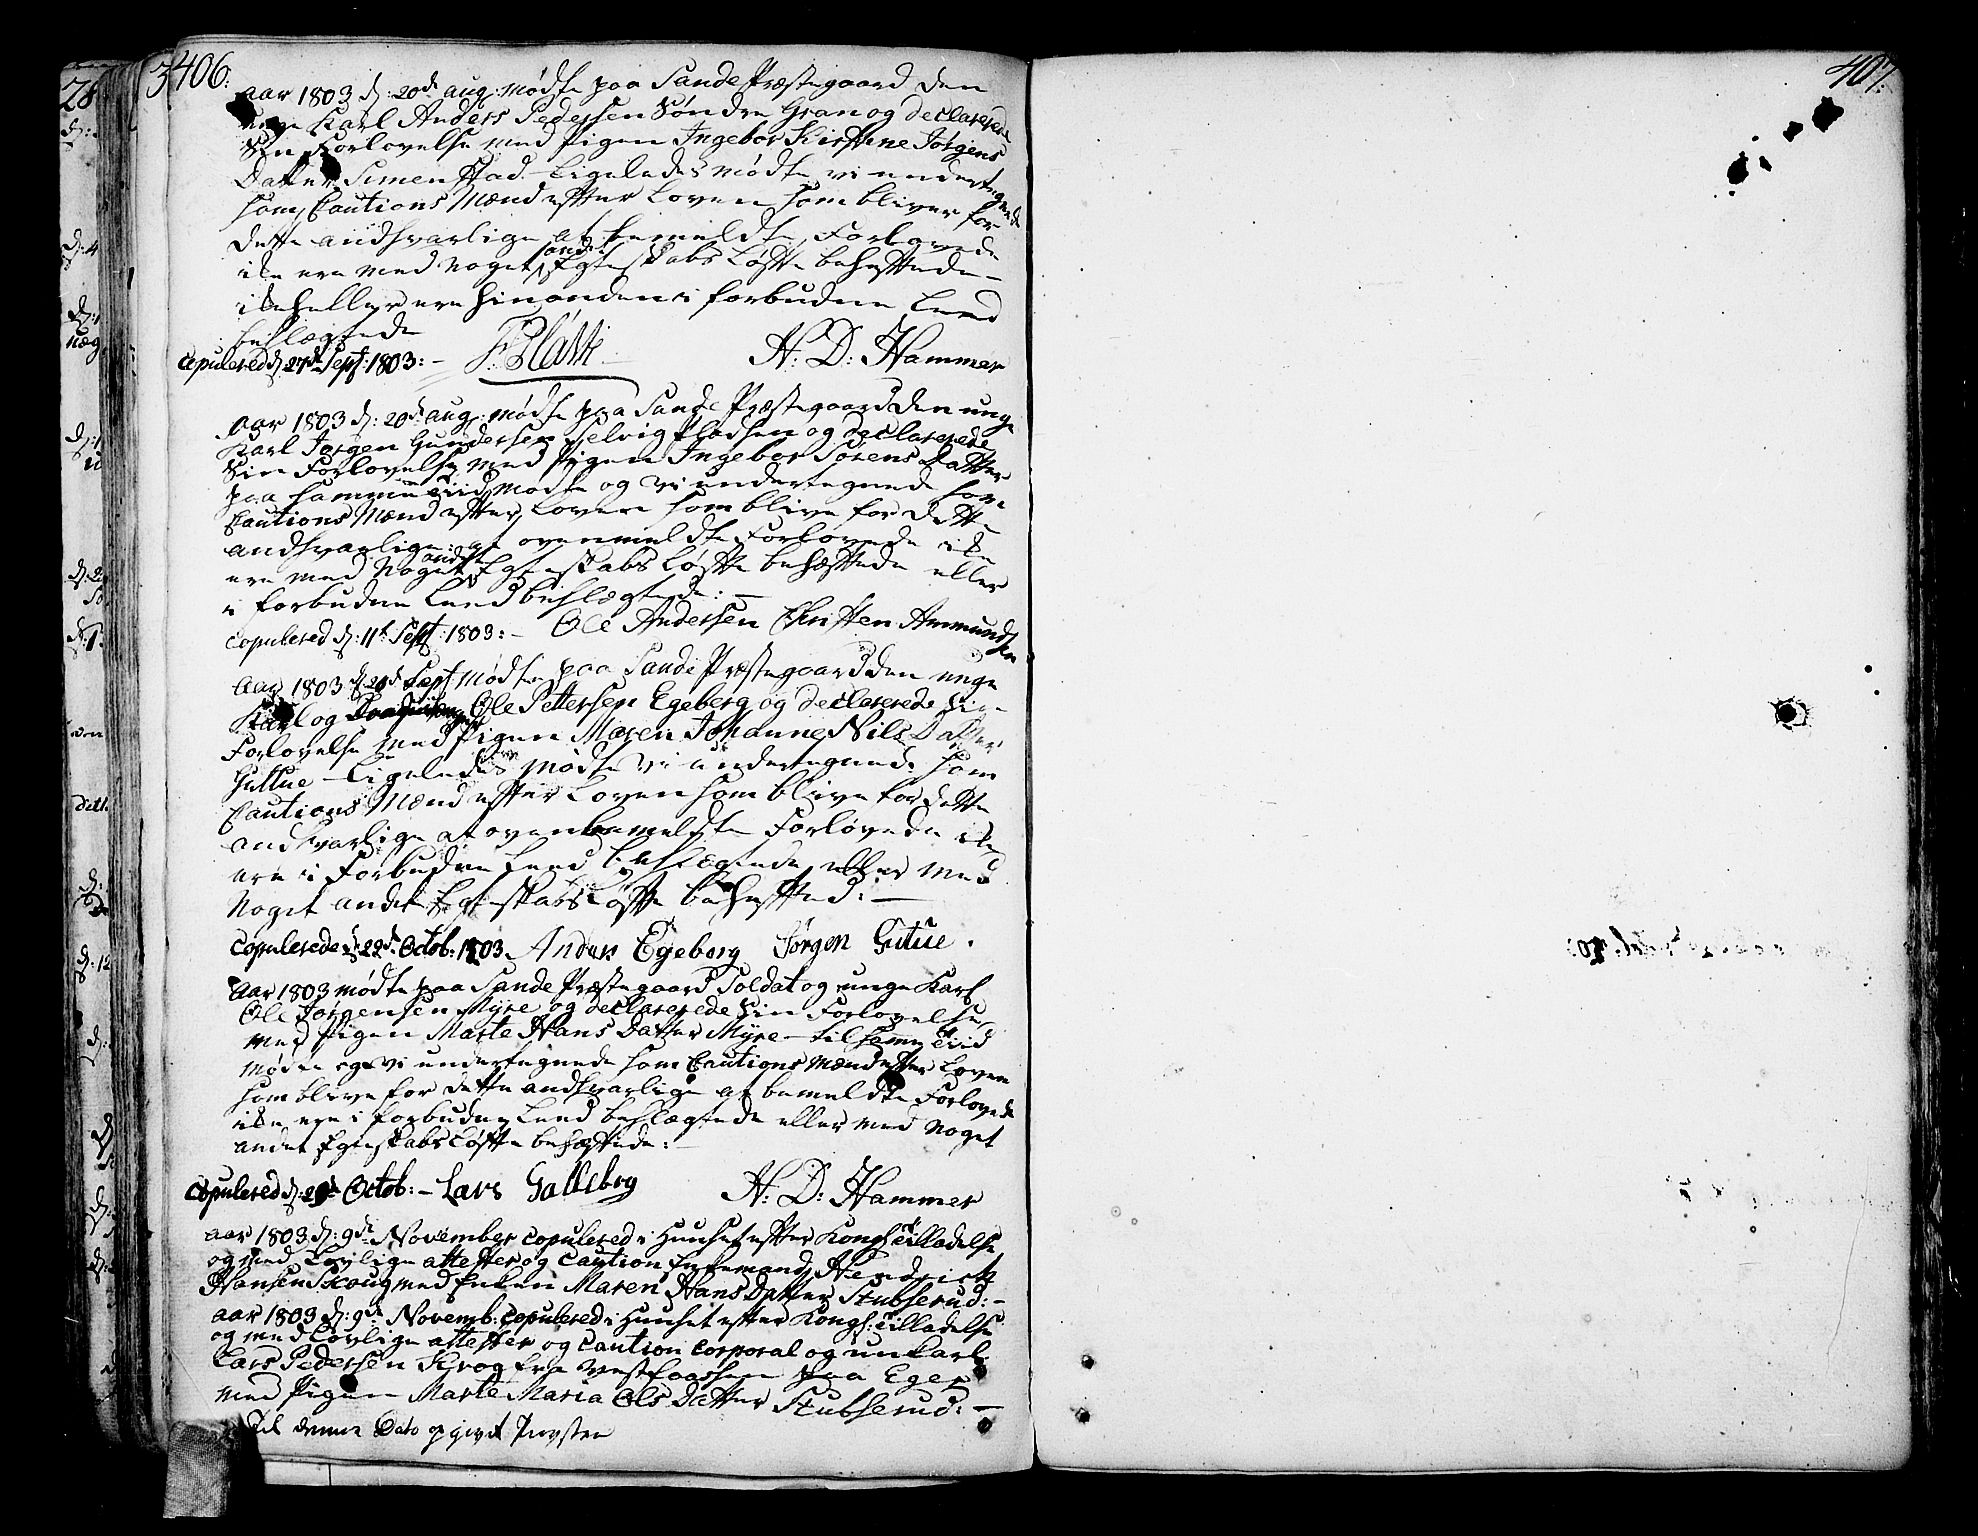 406.
407.
Aar 1803 d: 20de aug: mødte paa Sande Præstegaard den
unge Karl Anders Pedersen Søndre Gran og declarerede
Sin Forlovelse med Pigen Ingebor Kirstine Jørgens
Datter Simenstad - Ligeledes mødte vi undertegnede
som Cautions Mænd efter Loven som bliver for
dette andsvarlige at bemeldte Forlovede
ike ere med noget andet Egteskabs Løfte behæftede -
ike heller ere hinanden i forbudne Leed
beslægtede
copulered d: 27de Sept: 1803: - H: D: Hammer
Aar 1803 d: 20de aug: mødte paa Sande Præstegaard den unge
Karl Jørgen Gundersen Selvig Pladsen og declarerede
Sin Forlovelse med Pigen Ingebor Sørens Datter
paa samme Tiid mødte og vi undertegnede som
Cautions Mænd efter Loven som blive for dette
andsvarlige at ovenmeldte Forlovede ike
ere med noget andet Egteskabs Løfte behæftede eller
i forbudne Leed beslægtede: -
copulered d: 11te Sept: 1803: - Ole Andersen Christen Ammundsen
Aar 1803 d: Sept: mødte paa Sande Præstegaard den unge
Karl og Ole Pettersen Egeberg og declarerede Sin
Forlovelse med Pigen Maren Johanne Nils Datter
Guttue - Ligeledes mødte vi undertegnede som
Cautions Mænd efter Loven som blive for dette
andsvarlige at ovenbemeldte Forlovede ike
ere i Forbudne Leed beslægtede eller med
noget andet Egteskabs Løfte behæfted: -
copulerede d: 22de Octob: 1803. Anders Egeberg Jørgen Gutue.
Aar 1803 mødte paa Sande Præstegaard Soldat og unge Karl
Ole Jørgensen Myre og declarerede Sin Forlovelse
med Pigen Marte Hans Datter Myre - til samme Tiid
møde og vi undertegnede som Cautions Mænd efter Loven
som blive for dette andsvarlige at bemeldte Forlovede
ike ere i forbudne Leed beslægtede eller med noget
andet Egteskabs Løfte behæftede: -
Copulered d: Octob: - Lars Galleberg H: D: Hammer
Aar 1803 d: 9de November copulered i Huuset efter Kongl: Tilladelse
og med Lovlige attester og Caution Enkemand Hendrick
Hansen Scoug med Enken Maren Hans Datter Stubserud: -
Aar 1803 d: 9de Novemb: copulered i Huuset efter Kongl: Tilladelse
og med Lovlige attester og Caution Corporal og unkarl
Lars Pedersen Krog fra Vestfossen paa Eger
med Pigen Marte Maria Ols Datter Stubserud: -
Til denne Dato opgivet Provsten